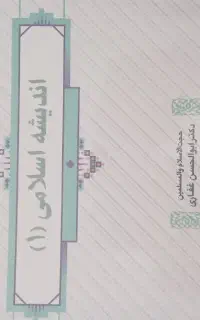 اندیشه اسلامی (۱)
حجت‌الاسلام والمسلمین
دکتر ابوالحسن غفاری